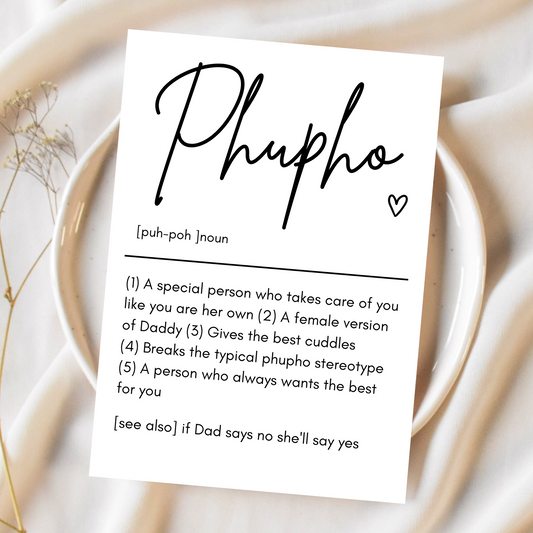 Phupho
[puh-poh ]noun
(1) A special person who takes care of you
like you are her own (2) A female version
of Daddy (3) Gives the best cuddles
(4) Breaks the typical phupho stereotype
(5) A person who always wants the best
for you
[see also] if Dad says no she'll say yes